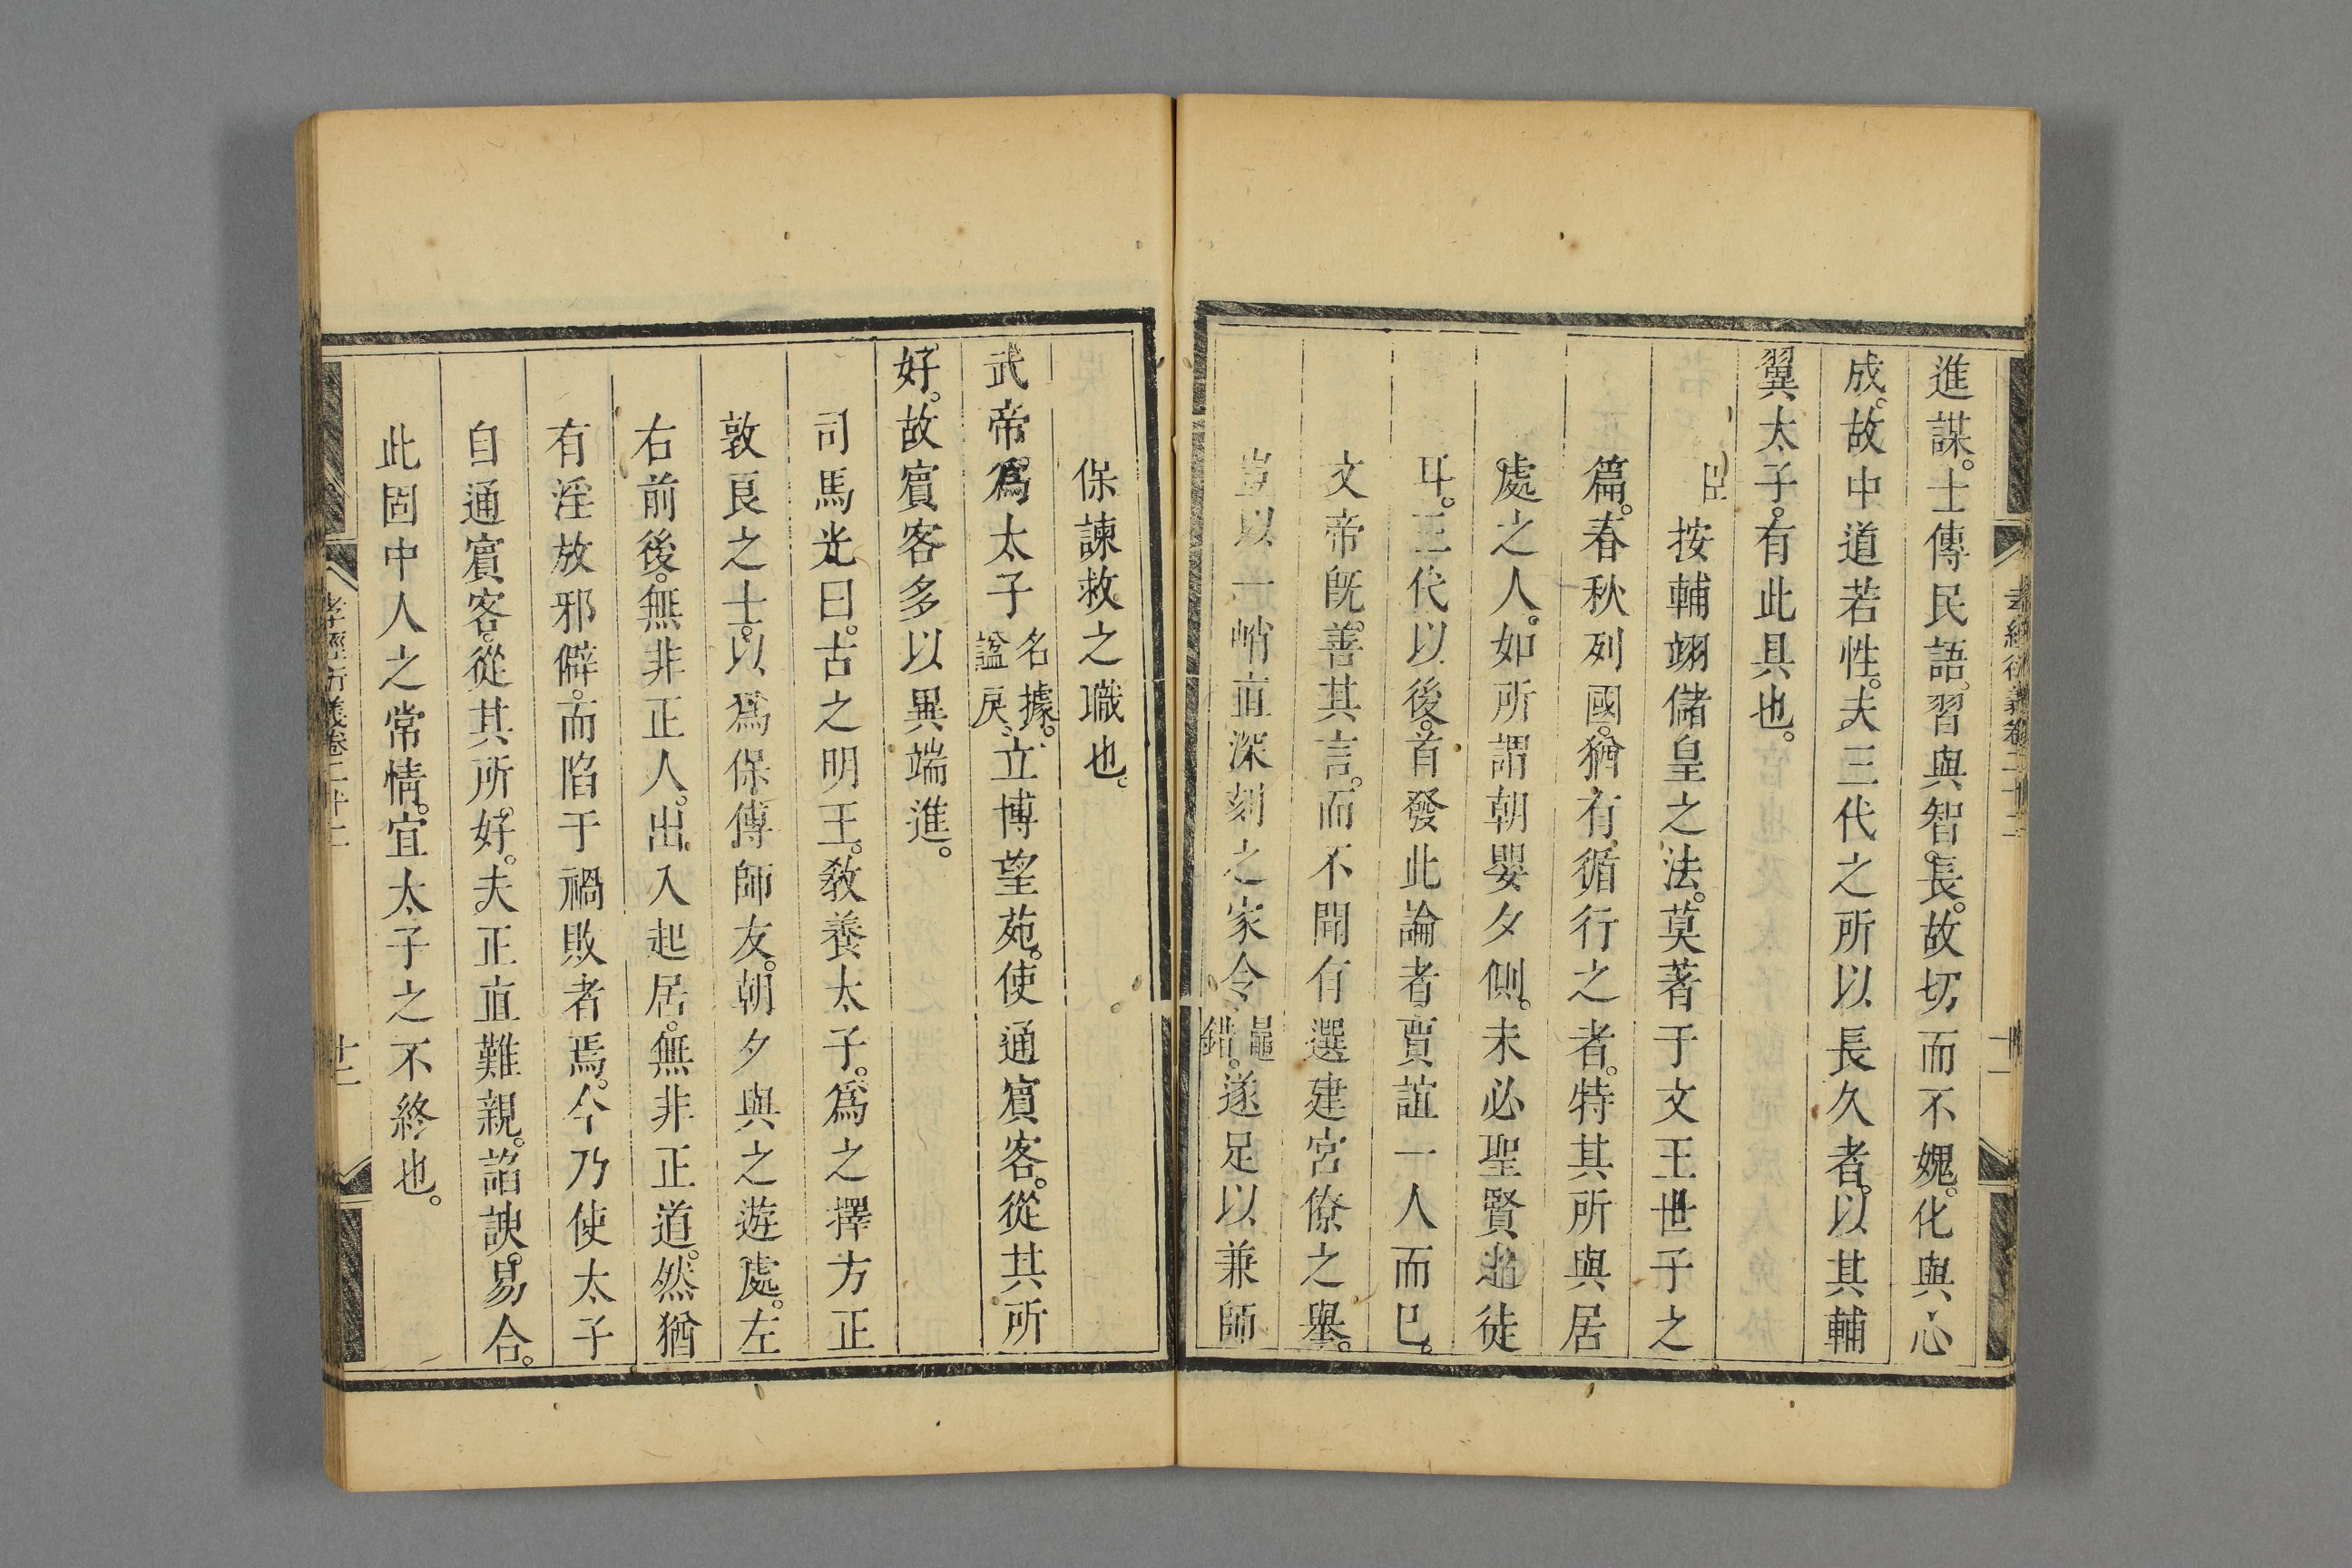 進謀。士傳民語。習與智長。故切而不媿。化與心
成。故中道若性。夫三代之所以長久者。以其輔
翼太子。有此具也。
臣按輔翊儲皇之法。莫著于文王世子之
篇。春秋列國。猶有循行之者。特其所與居
處之人。如所謂朝嬰夕側。未必聖賢之徒
耳。三代以後。首發此論者。賈誼一人而已。
文帝旣善其言。而不聞有選建宮僚之舉。
豈以一峭直深刻之家令鼂錯。遂足以兼師
保諫救之職也。
武帝爲太子名據。諡戾。立博望苑。使通賓客。從其所
好。故賓客多以異端進。
司馬光曰。古之明王。敎養太子。爲之擇方正
敦良之士。以爲保傅師友。朝夕與之遊處。左
右前後。無非正人。出入起居。無非正道。然猶
有淫放邪僻。而陷于禍敗者焉。今乃使太子
自通賓客。從其所好。夫正直難親。諂諛易合。
此固中人之常情。宜太子之不終也。
孝經衍義卷二十二